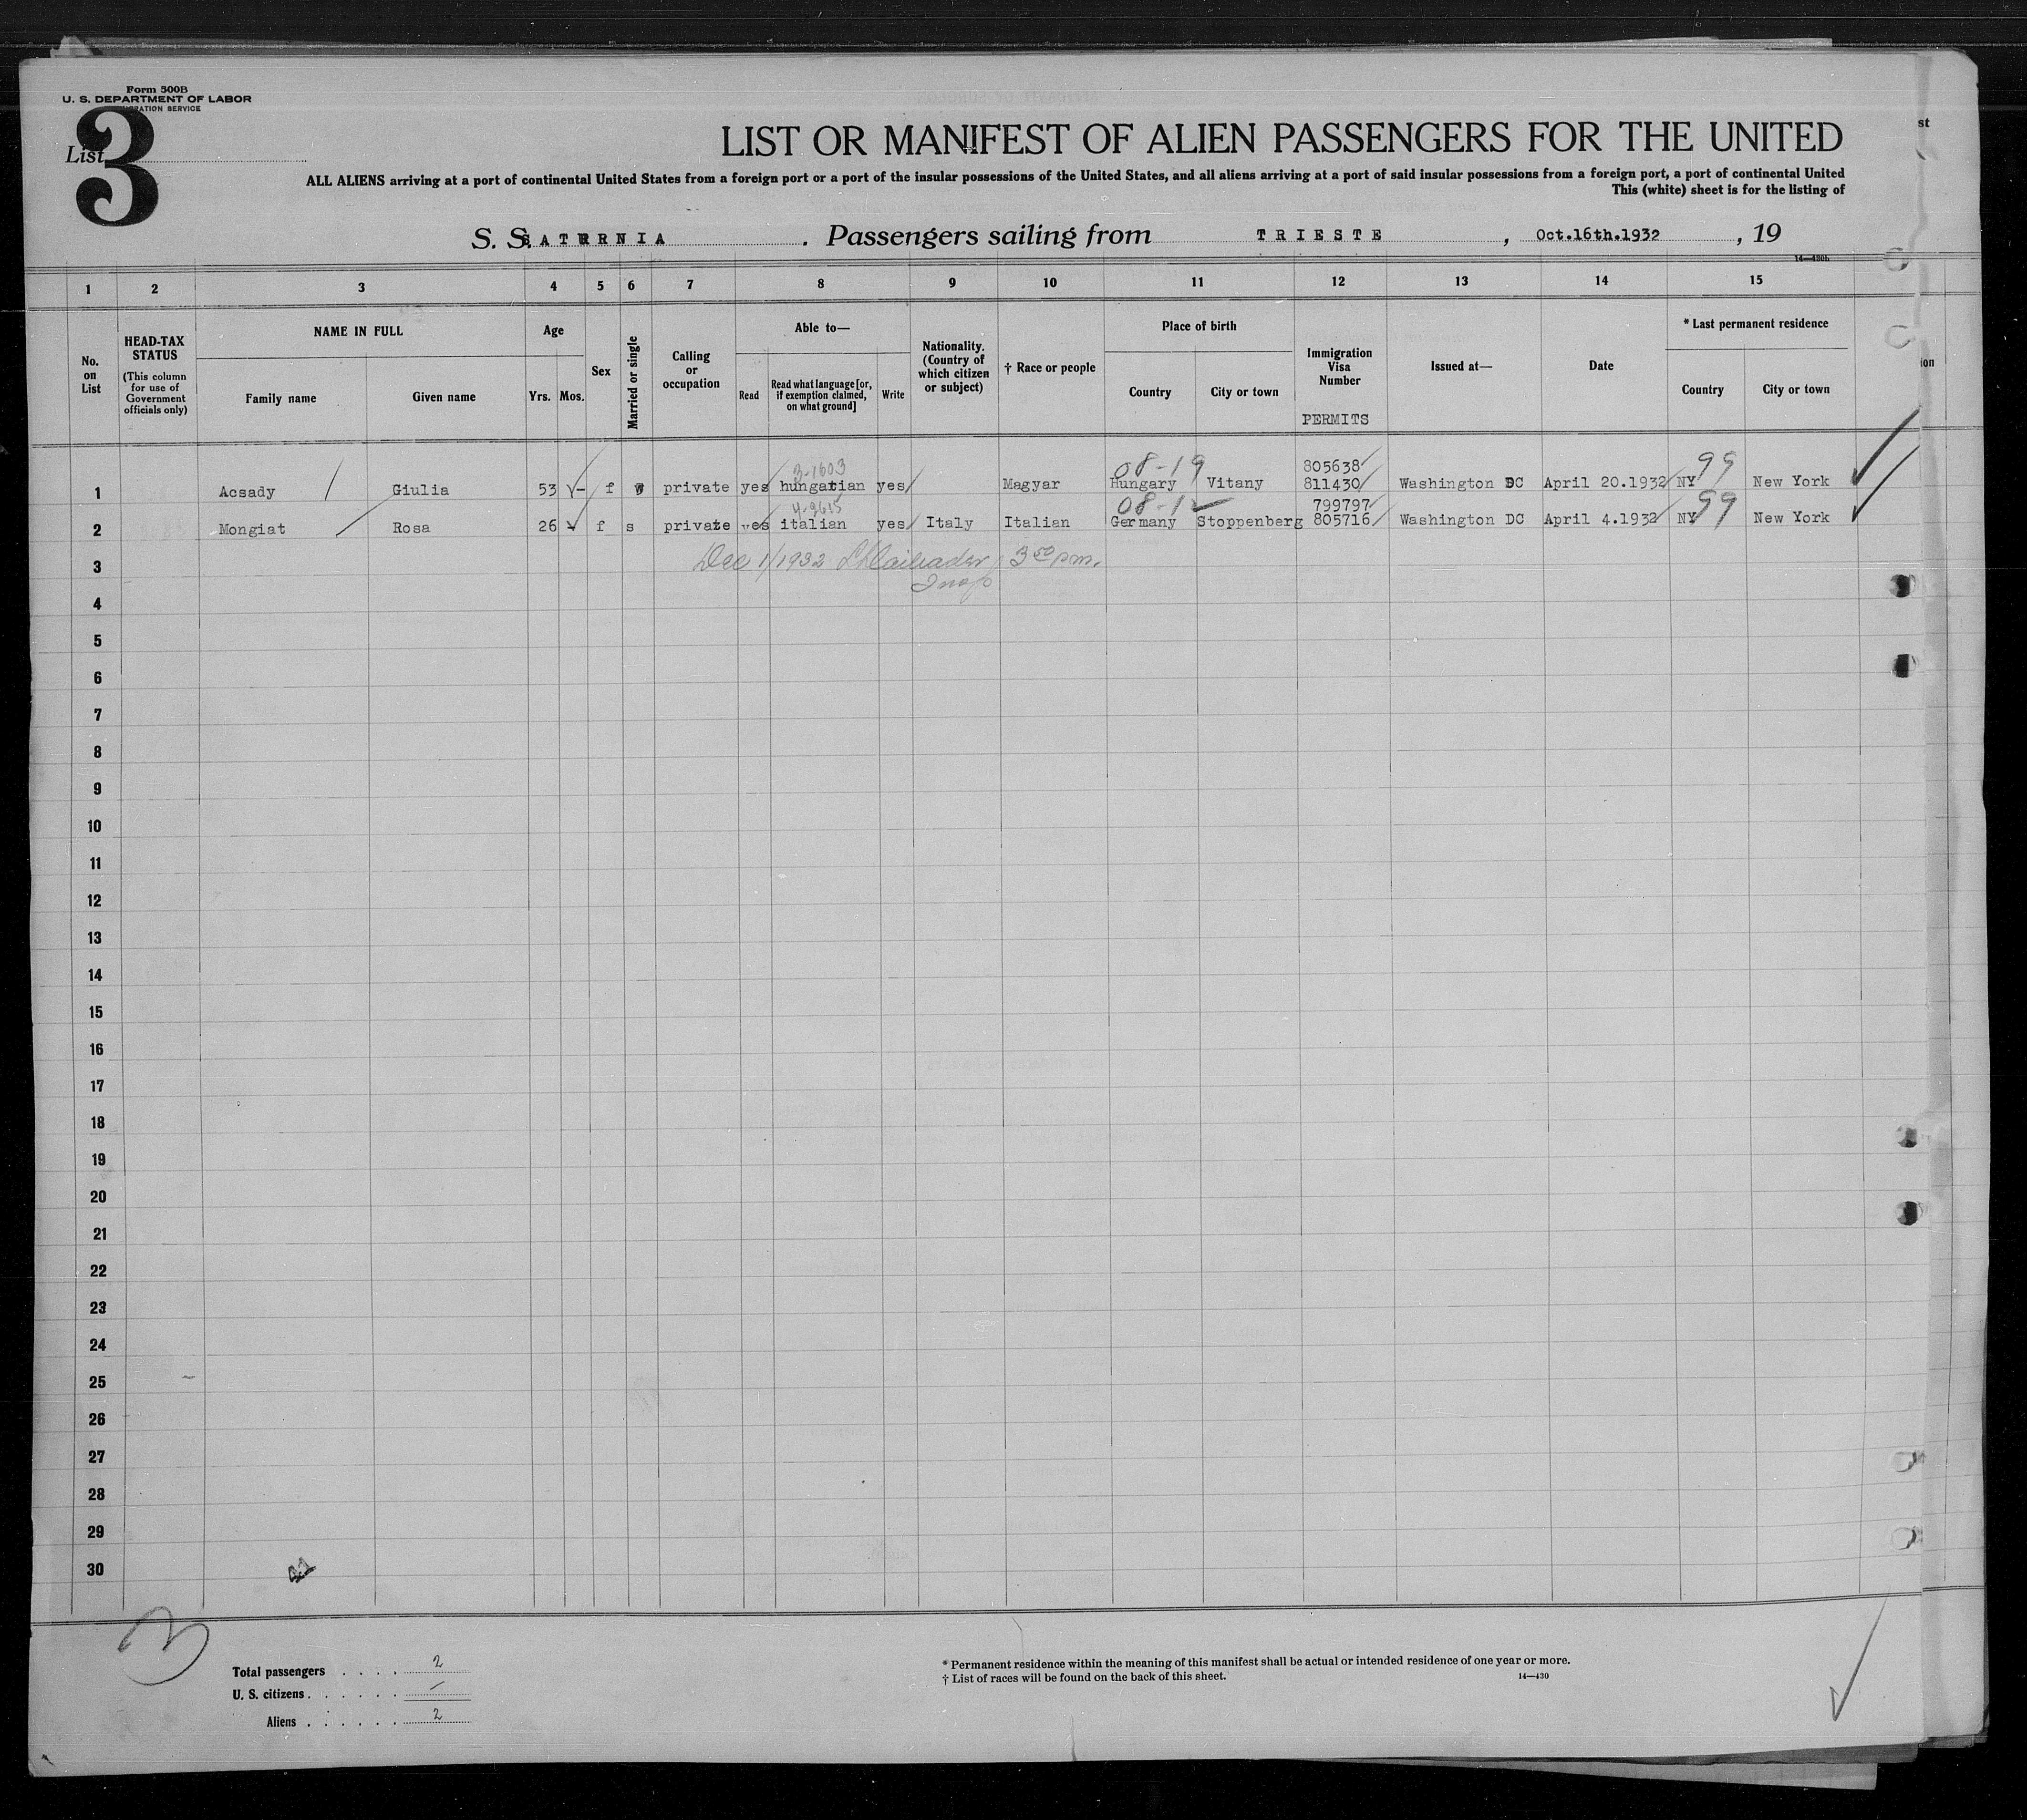 Form 500B
U. S. DEPARTMENT OF LABOR
List 3
LIST OR MANIFEST OF ALIEN PASSENGERS FOR THE UNITED
ALL ALIENS arriving at a port of continental United States from a foreign port or a port of the insular possessions of the United States, and all aliens arriving at a port of said insular possessions from a foreign port, a port of continental United
This (white) sheet is for the listing of
S. S. SATURNIA. Passengers sailing from TRIESTE, Oct.16th.1932, 19
14—430b
1 2 3 4 5 6 7 8 9 10 11 12 13 14 15
No. on List
HEAD-TAX STATUS
(This column for use of Government officials only)
NAME IN FULL
Family name
Given name
Age
Yrs. Mos.
Sex
Married or single
Calling or occupation
Able to—
Read
Read what language [or, if exemption claimed, on what ground]
Write
Nationality. (Country of which citizen or subject)
† Race or people
Place of birth
Country
City or town
Immigration Visa Number
PERMITS
Issued at—
Date
* Last permanent residence
Country
City or town
3-1603 08-19 805638 99
1 Acsady Giulia 53 - f private yes hungarian yes Magyar Hungary Vitany 811430 Washington DC April 20.1932 NY New York
08-1 799797 99
2 Mongiat Rosa 26 f s private yes italian yes Italy Italian Germany Stoppenberg 805716 Washington DC April 4.1932 NY New York
3 Dec 1/1932 3 50 p.m.
4
5
6
7
8
9
10
11
12
13
14
15
16
17
18
19
20
21
22
23
24
25
26
27
28
29
30
3
Total passengers . . . . 2
U. S. citizens . . . . . . –
Aliens . . . . . . 2
* Permanent residence within the meaning of this manifest shall be actual or intended residence of one year or more.
† List of races will be found on the back of this sheet. 14—430